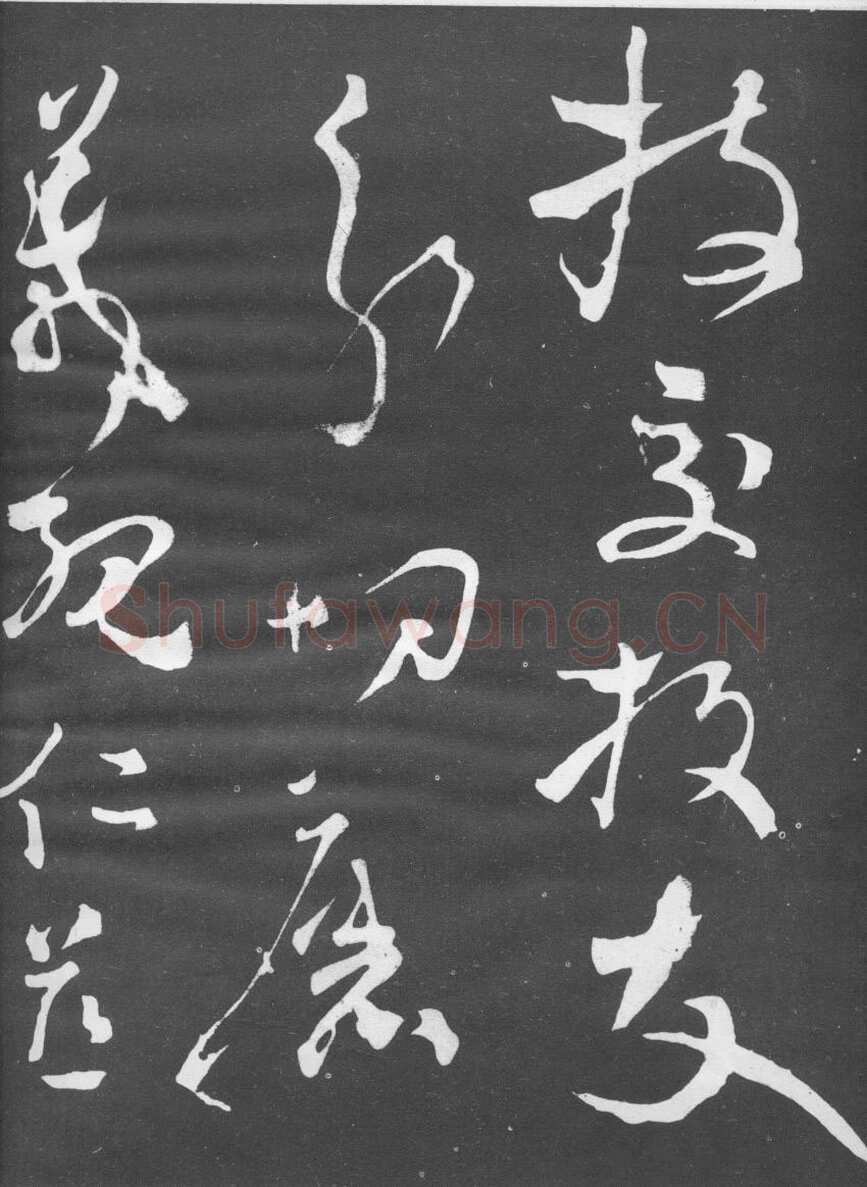 枝交投友
分切磨
箴規仁慈
Shufawang.CN